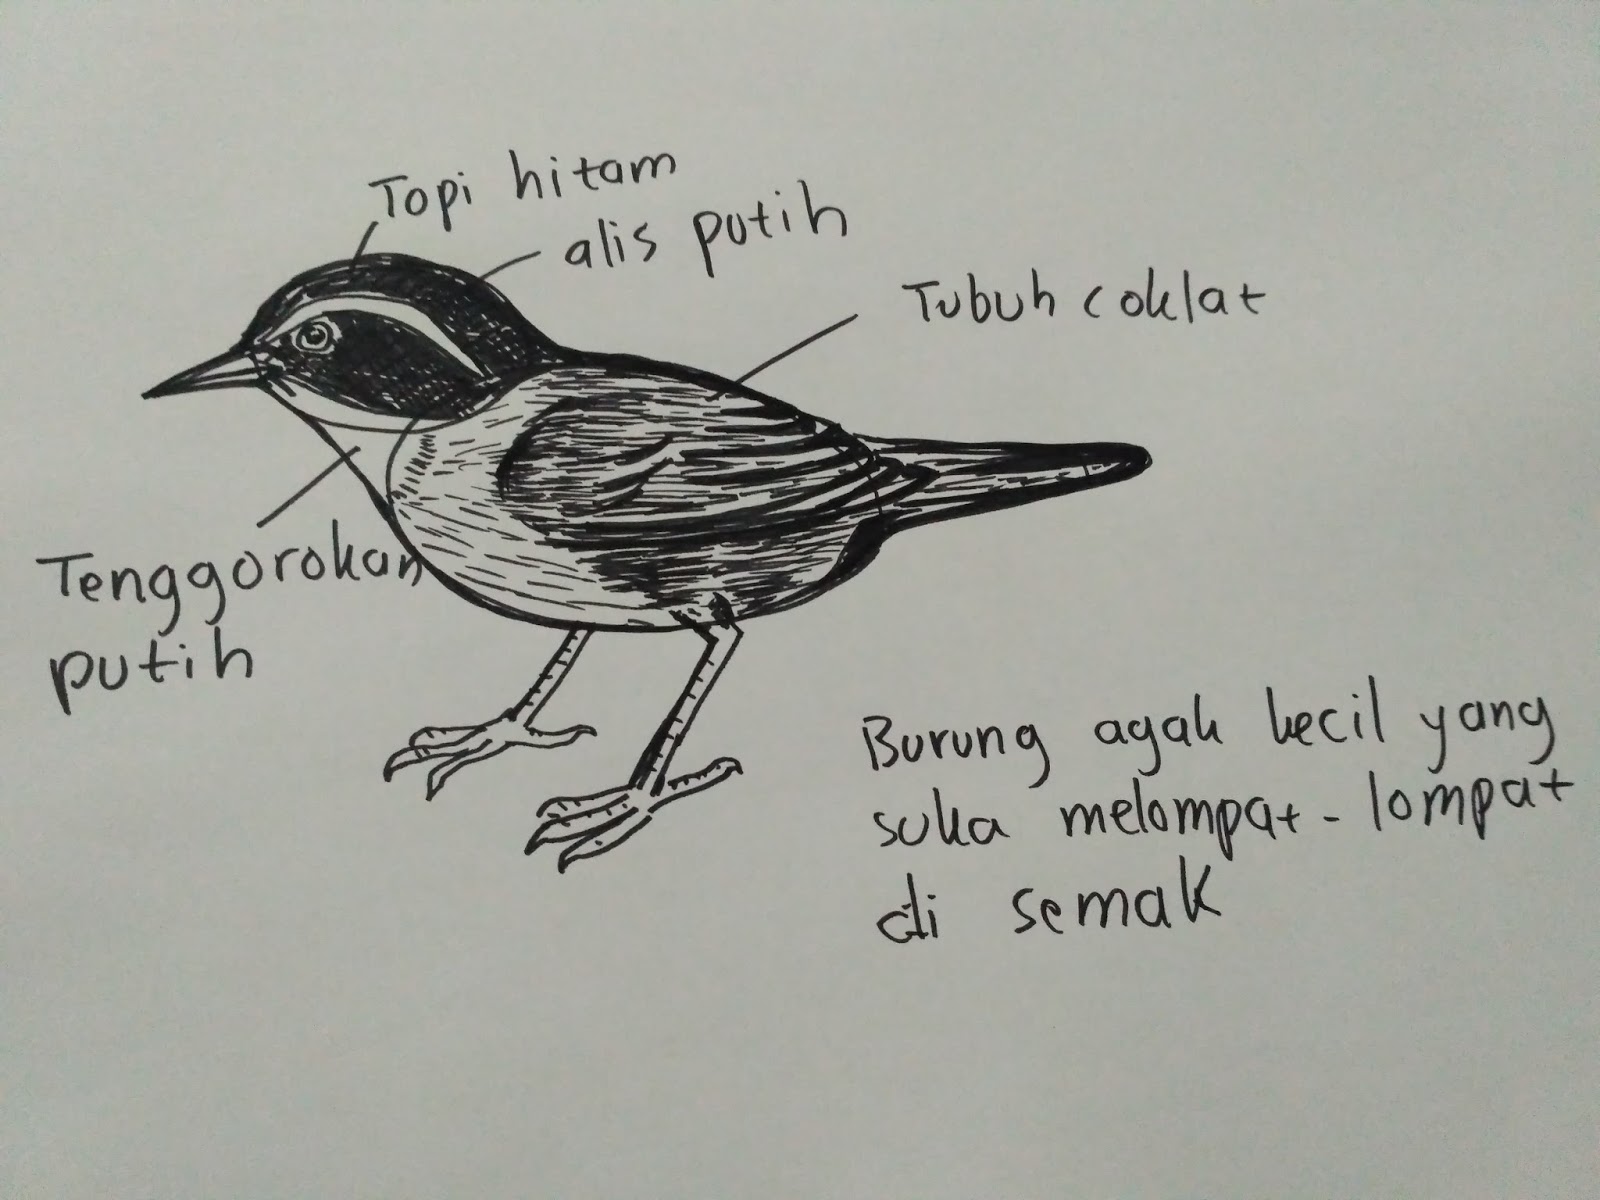 Topi hitam
alis putih
Tubuh coklat
Tenggorokan
putih
Burung agak kecil yang
suka melompat-lompat
di semak